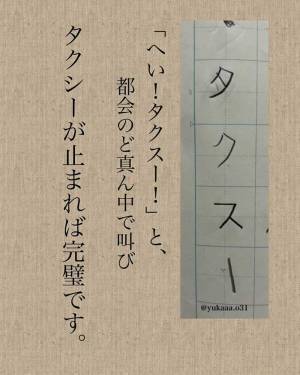 タクスー
@yukaaa.o31
「へい！タクスー！」と、
都会のど真ん中で叫び
タクシーが止まれば完璧です。